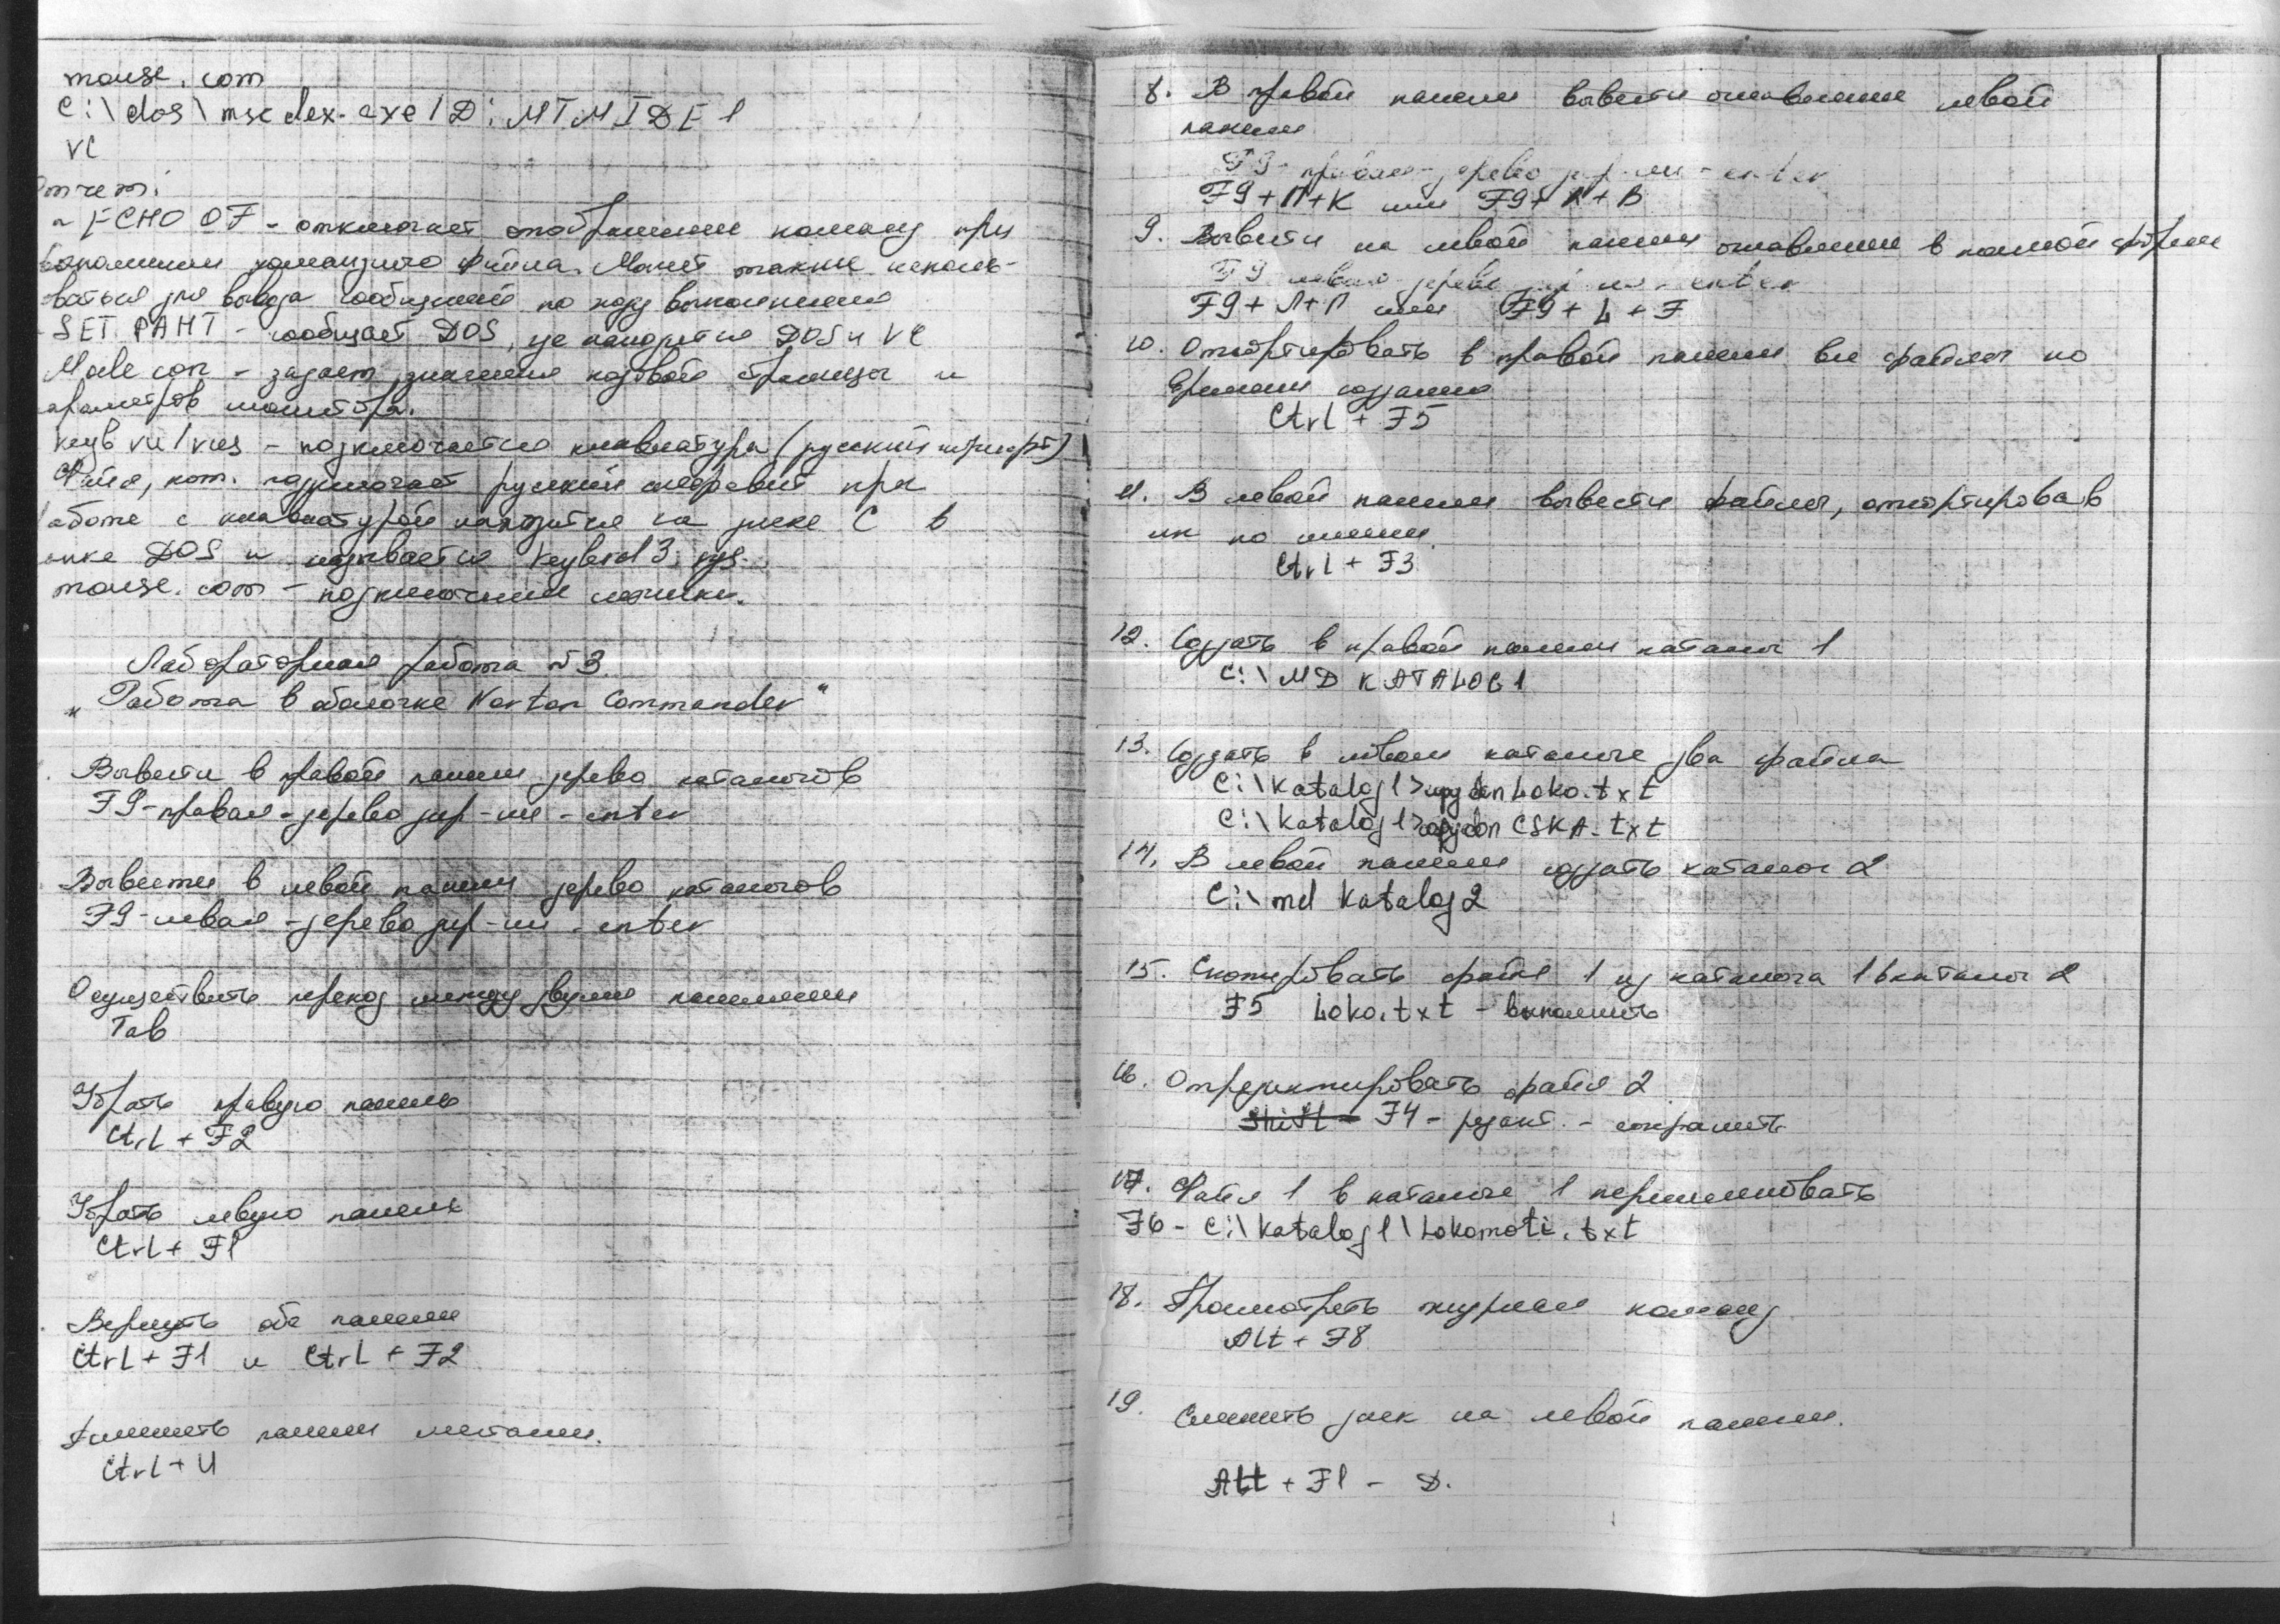 mouse.com
C:\dos\mscdex.exe /D:MTMIDE1
VC
Отчет:
ECHO OF - отключает отображение команд при
выполнении командного файла. Может также исполь-
зоваться для вывода сообщений по ходу выполнения
- SET PAHT - сообщает DOS, где находятся DOS и VC
Mode con - задает значения кодовой страницы и
параметров монитора.
keyb ru/rus - подключается клавиатура (русский шрифт)
Файл, кот. подключает русский алфавит при
работе с клавиатурой находится на диске C в
папке DOS и называется keybrd3.sys.
mouse.com - подключение мышки.
Лабораторная работа №3.
„Работа в оболочке Norton Commander“
Вывести в правой панели дерево каталогов
F9-правая-дерево дир-ии-enter
Вывести в левой панели дерево каталогов
F9-левая-дерево дир-ии-enter
Осуществить переход между двумя панелями
Tab
Убрать правую панель
Ctrl + F2
Убрать левую панель
Ctrl + F1
Вернуть обе панели
Ctrl + F1 и Ctrl + F2
панели местами.
Ctrl + U
8. В правой панели вывести оглавление левой
панели
F9-правая-дерево дир-ии-enter
F9+П+К или F9+
9. Вывести на левой панели оглавление в полной форме
F9 левая дерево enter
F9+Л+П или F9+L+F
10. Отсортировать в правой панели все файлы по
времени создания
Ctrl + F5
11. В левой панели вывести файлы, отсортировав
их по имени.
Ctrl + F3
12. Создать в правой панели каталог 1
C:\MD KATALOG1
13. Создать в новом каталоге два файла
C:\katalog1> con Loko.txt
C:\katalog1> con CSKA.txt
14. В левой панели создать каталог 2
C:\md katalog2
15. Скопировать файл 1 из каталога 1 в каталог 2
F5 Loko.txt - выполнить
16. Отредактировать файл 2
Shift - F4 - редакт. - сохранить
17. Файл 1 в каталоге 1 переименовать
F6 - C:\katalog1\Lokomoti.txt
18. Просмотреть журнал команд
Alt + F8
19. Сменить диск на левой панели.
Alt + F1 - D.